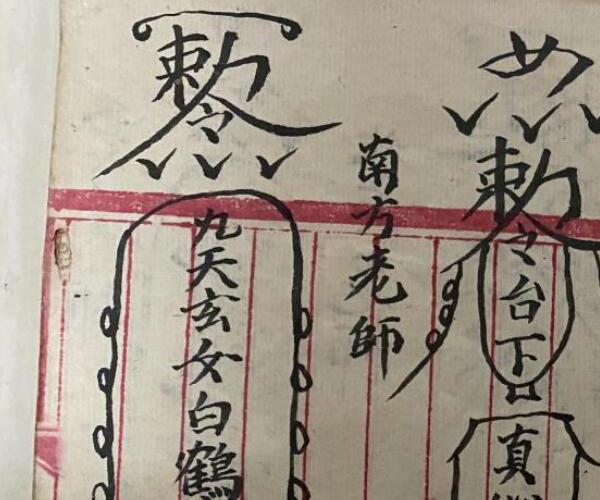 勅令台下
真
南方老師
勅令
九天玄女白鶴